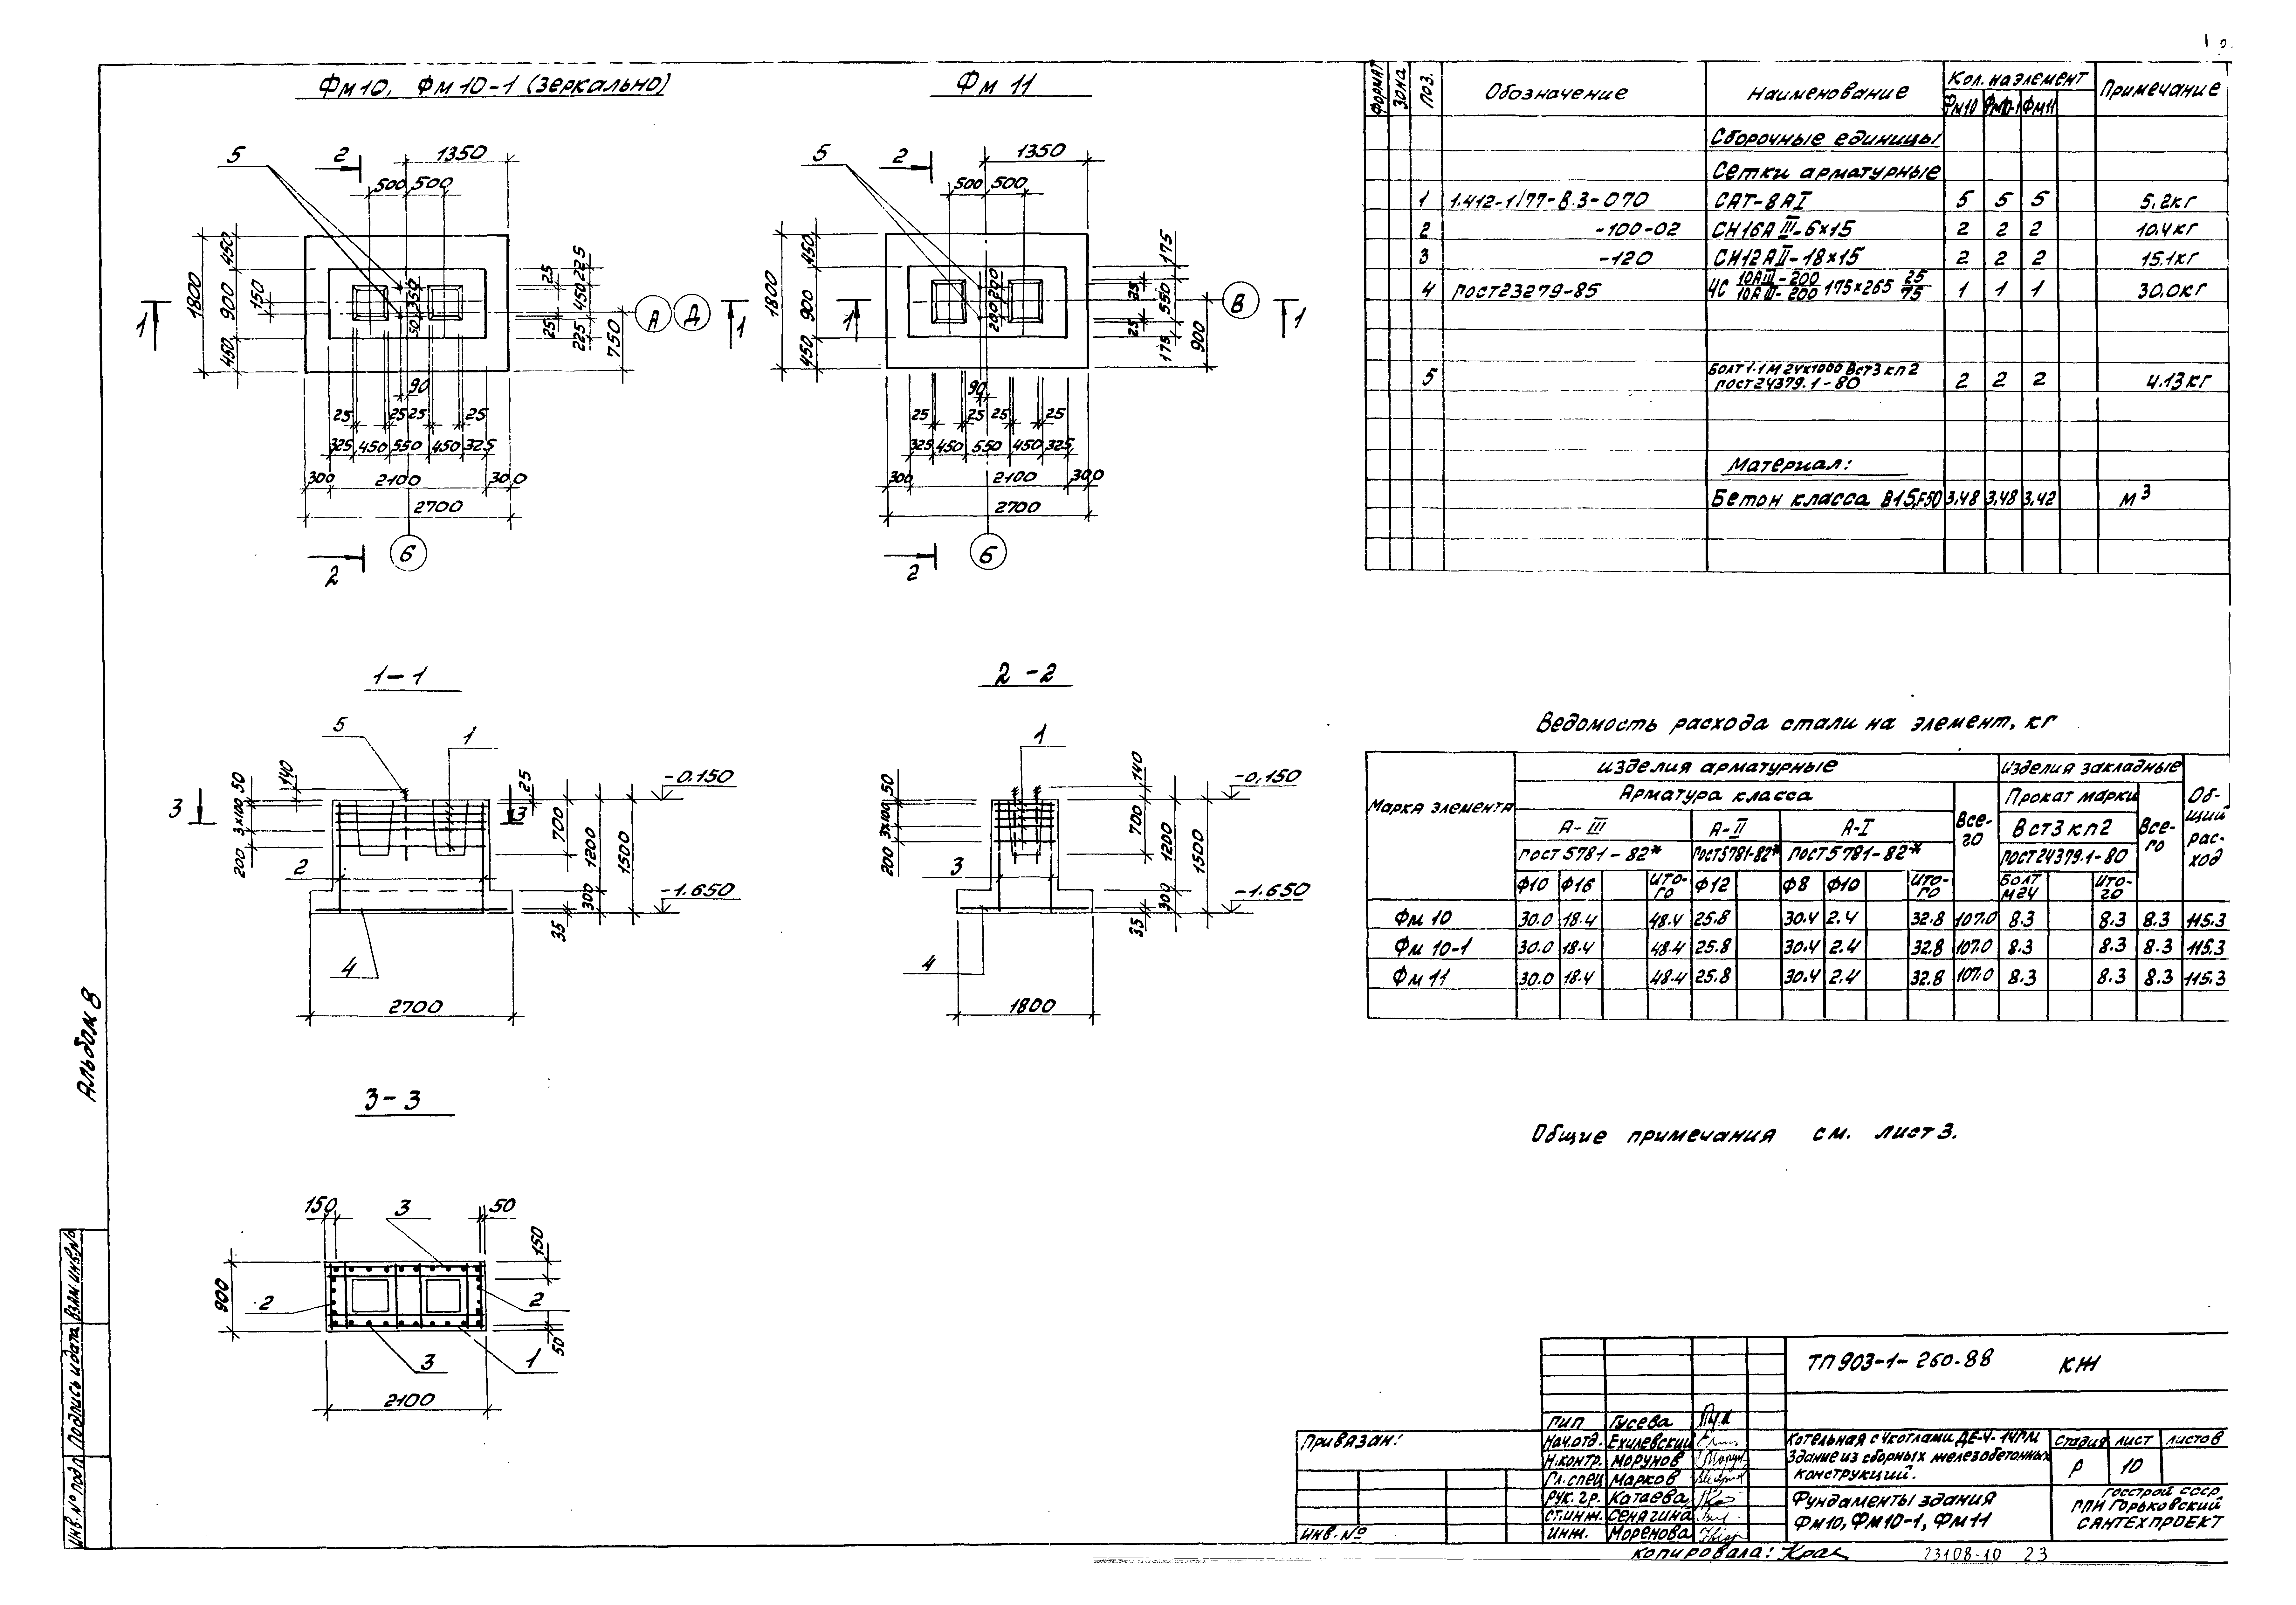 Фм10, Фм10-1 (зеркально)
Фм 11
5 2 1350
500 500
1800 450 900 450 150
350 50
25 25 225 450 225 750
А Д
1 1
90
25 25 25 25
325 450 550 450 325
300 2100 300
2700
2 Б
5 2 1350
500 500
1800 450 900 450
200 200
25 25 175 550 175 900
В
1 1
90
25 25 25 25
325 450 550 450 325
300 2100 300
2700
2 Б
1-1
5 1
50 140 25
3×100
200
-0.150
3 3
700 1200 1500
2
300
-1.650
35
4
2700
2-2
1
50 140
3×100
200
-0.150
700 1200 1500
3
300
-1.650
35
4
1800
3-3
150 3 50
150
900
2 2
50
3 1
2100
Формат Зона Поз. Обозначение Наименование Кол. на элемент Примечание
Фм10 Фм10-1 Фм11
Сборочные единицы
Сетки арматурные
1 1.412-1/77-В.3-070 САТ-8АI 5 5 5 5.2кг
2 -100-02 СН16АIII-6×15 2 2 2 10.4кг
3 -120 СН12АII-18×15 2 2 2 15.1кг
4 ГОСТ23279-85 4С 10АIII-200/10АIII-200 175×265 25/75 1 1 1 30.0кг
5 Болт 1.1М24×1000 ВСт3кп2 ГОСТ24379.1-80 2 2 2 4.13кг
Материал:
Бетон класса В15,F50 3,48 3,48 3,42 м3
Ведомость расхода стали на элемент, кг
Марка элемента Изделия арматурные Изделия закладные Общий расход
Арматура класса Всего Прокат марки Всего
А-III А-II А-I ВСт3кп2
ГОСТ 5781-82* ГОСТ5781-82* ГОСТ5781-82* ГОСТ24379.1-80
Ф10 Ф16 Итого Ф12 Ф8 Ф10 Итого Болт М24 Итого
Фм 10 30.0 18.4 48.4 25.8 30.4 2.4 32.8 107.0 8.3 8.3 8.3 115.3
Фм 10-1 30.0 18.4 48.4 25.8 30.4 2.4 32.8 107.0 8.3 8.3 8.3 115.3
Фм 11 30.0 18.4 48.4 25.8 30.4 2.4 32.8 107.0 8.3 8.3 8.3 115.3
Общие примечания см. лист 3.
Альбом 8
Инв.№ подл. Подпись и дата Взам.инв.№
ТП 903-1-260.88 КЖ
Привязан:
Инв.№
ГИП Гусева
Нач.отд. Ехилевский
Н.контр. Морунов
Гл.спец Марков
Рук.гр. Катаева
Ст.инж. Сенягина
Инж. Моренова
Котельная с 4 котлами ДЕ-4-14ГМ
Здание из сборных железобетонных
конструкций.
Стадия Лист Листов
Р 10
Фундаменты здания
Фм10, Фм10-1, Фм11
Госстрой СССР
ГПИ Горьковский
Сантехпроект
Копировала: Крас
23108-10 23